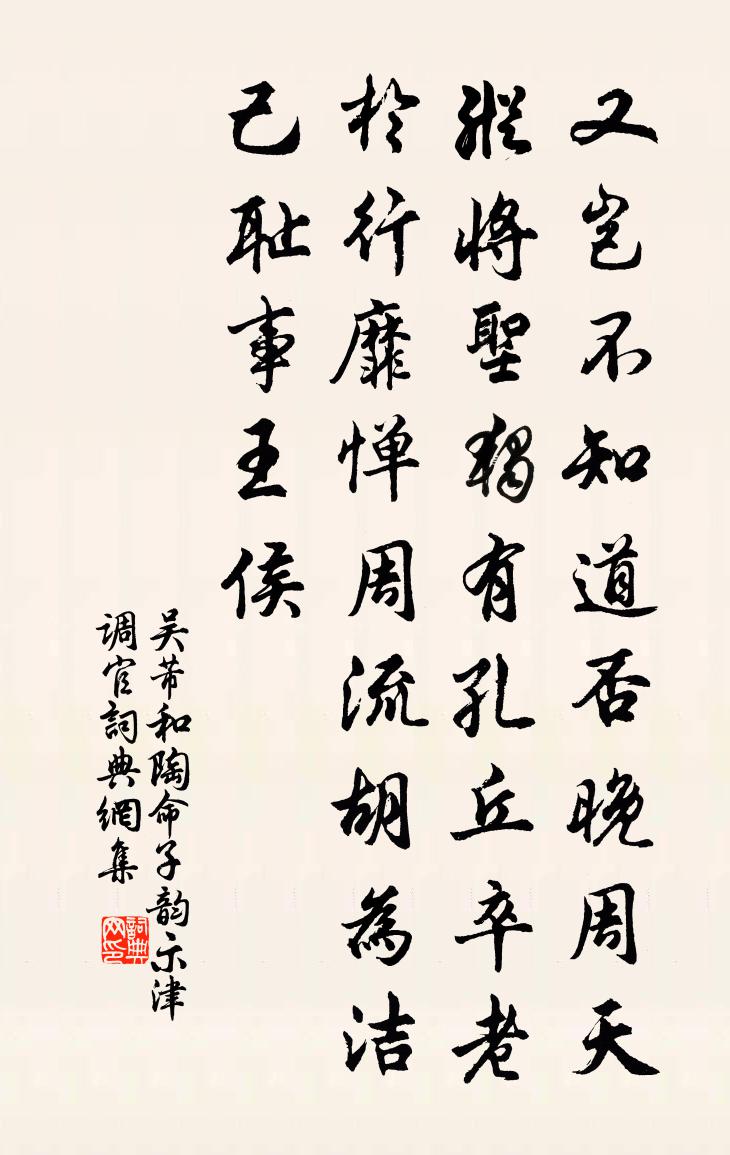 又岂不知道否晚周天
縱将聖独有孔丘卒老
於行靡惮周流胡為洁
己耻事王侯
吴芾和陶命子韵示津
调官詞典網集
詞典网印